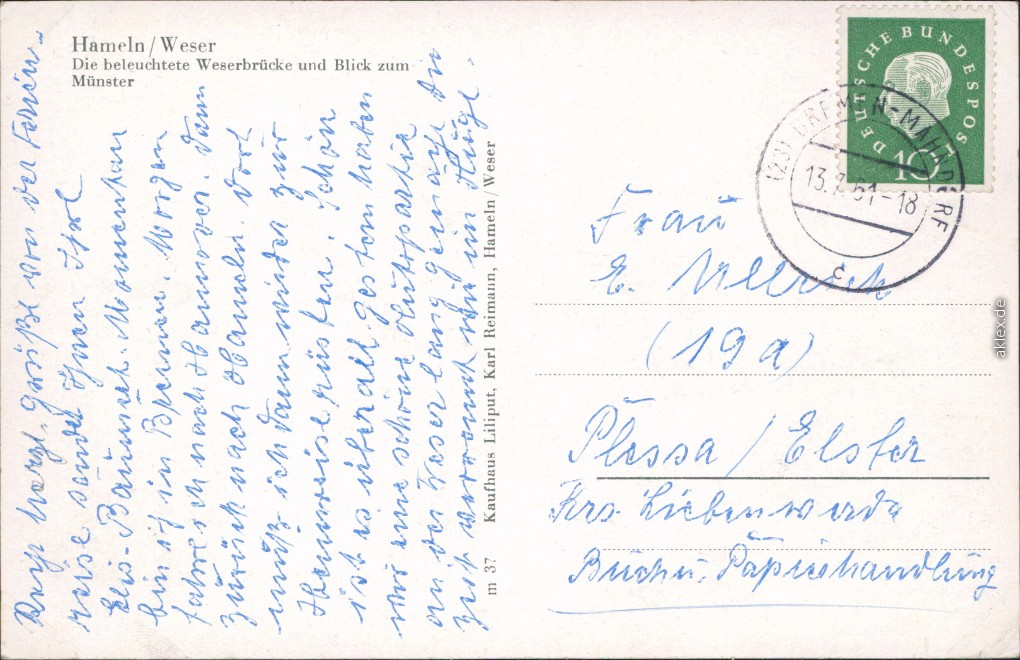 Hameln / Weser
Die beleuchtete Weserbrücke und Blick zum
Münster
herzl. Grüße von der Ferien-
reise sendet Ihnen
Momentan
bin ich in Bremen. Morgen
fahre ich nach Hannover. Dann
zurück nach Hameln. Dort
muß ich dann wieder zur
Heimreise rüsten. Schön
ist es überall. Gestern hatten
wir eine schöne Autopartie
an der Weser lang gemacht. Die
Zeit verrennt wie im Fluge.
m 37 Kaufhaus Liliput, Karl Reimann, Hameln/Weser
DEUTSCHE BUNDESPOST
10
(23) BREMEN-MAHNDORF
13.7.61-18
c
Frau
E. Ullrich
(19a)
Plessa / Elster
Krs. Liebenwerda
Buch u. Papierhandlung
aklex.de